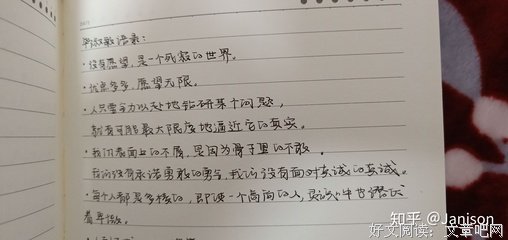 ·没有愿望,是一个死寂的世界。
愿望无限。
·人只要全力以赴地钻研某个问题,
都有可能最大限度地逼近它的真实。
·我们表面上的不屑,是因为骨子里的不敢。
我们没有承诺勇敢的勇气,我们没有面对真诚的真诚。
·每个人都是多核的,即使一个高尚的人,灵魂中也潜伏
着卑微。
知乎 @Janison
好文阅读:文章吧网